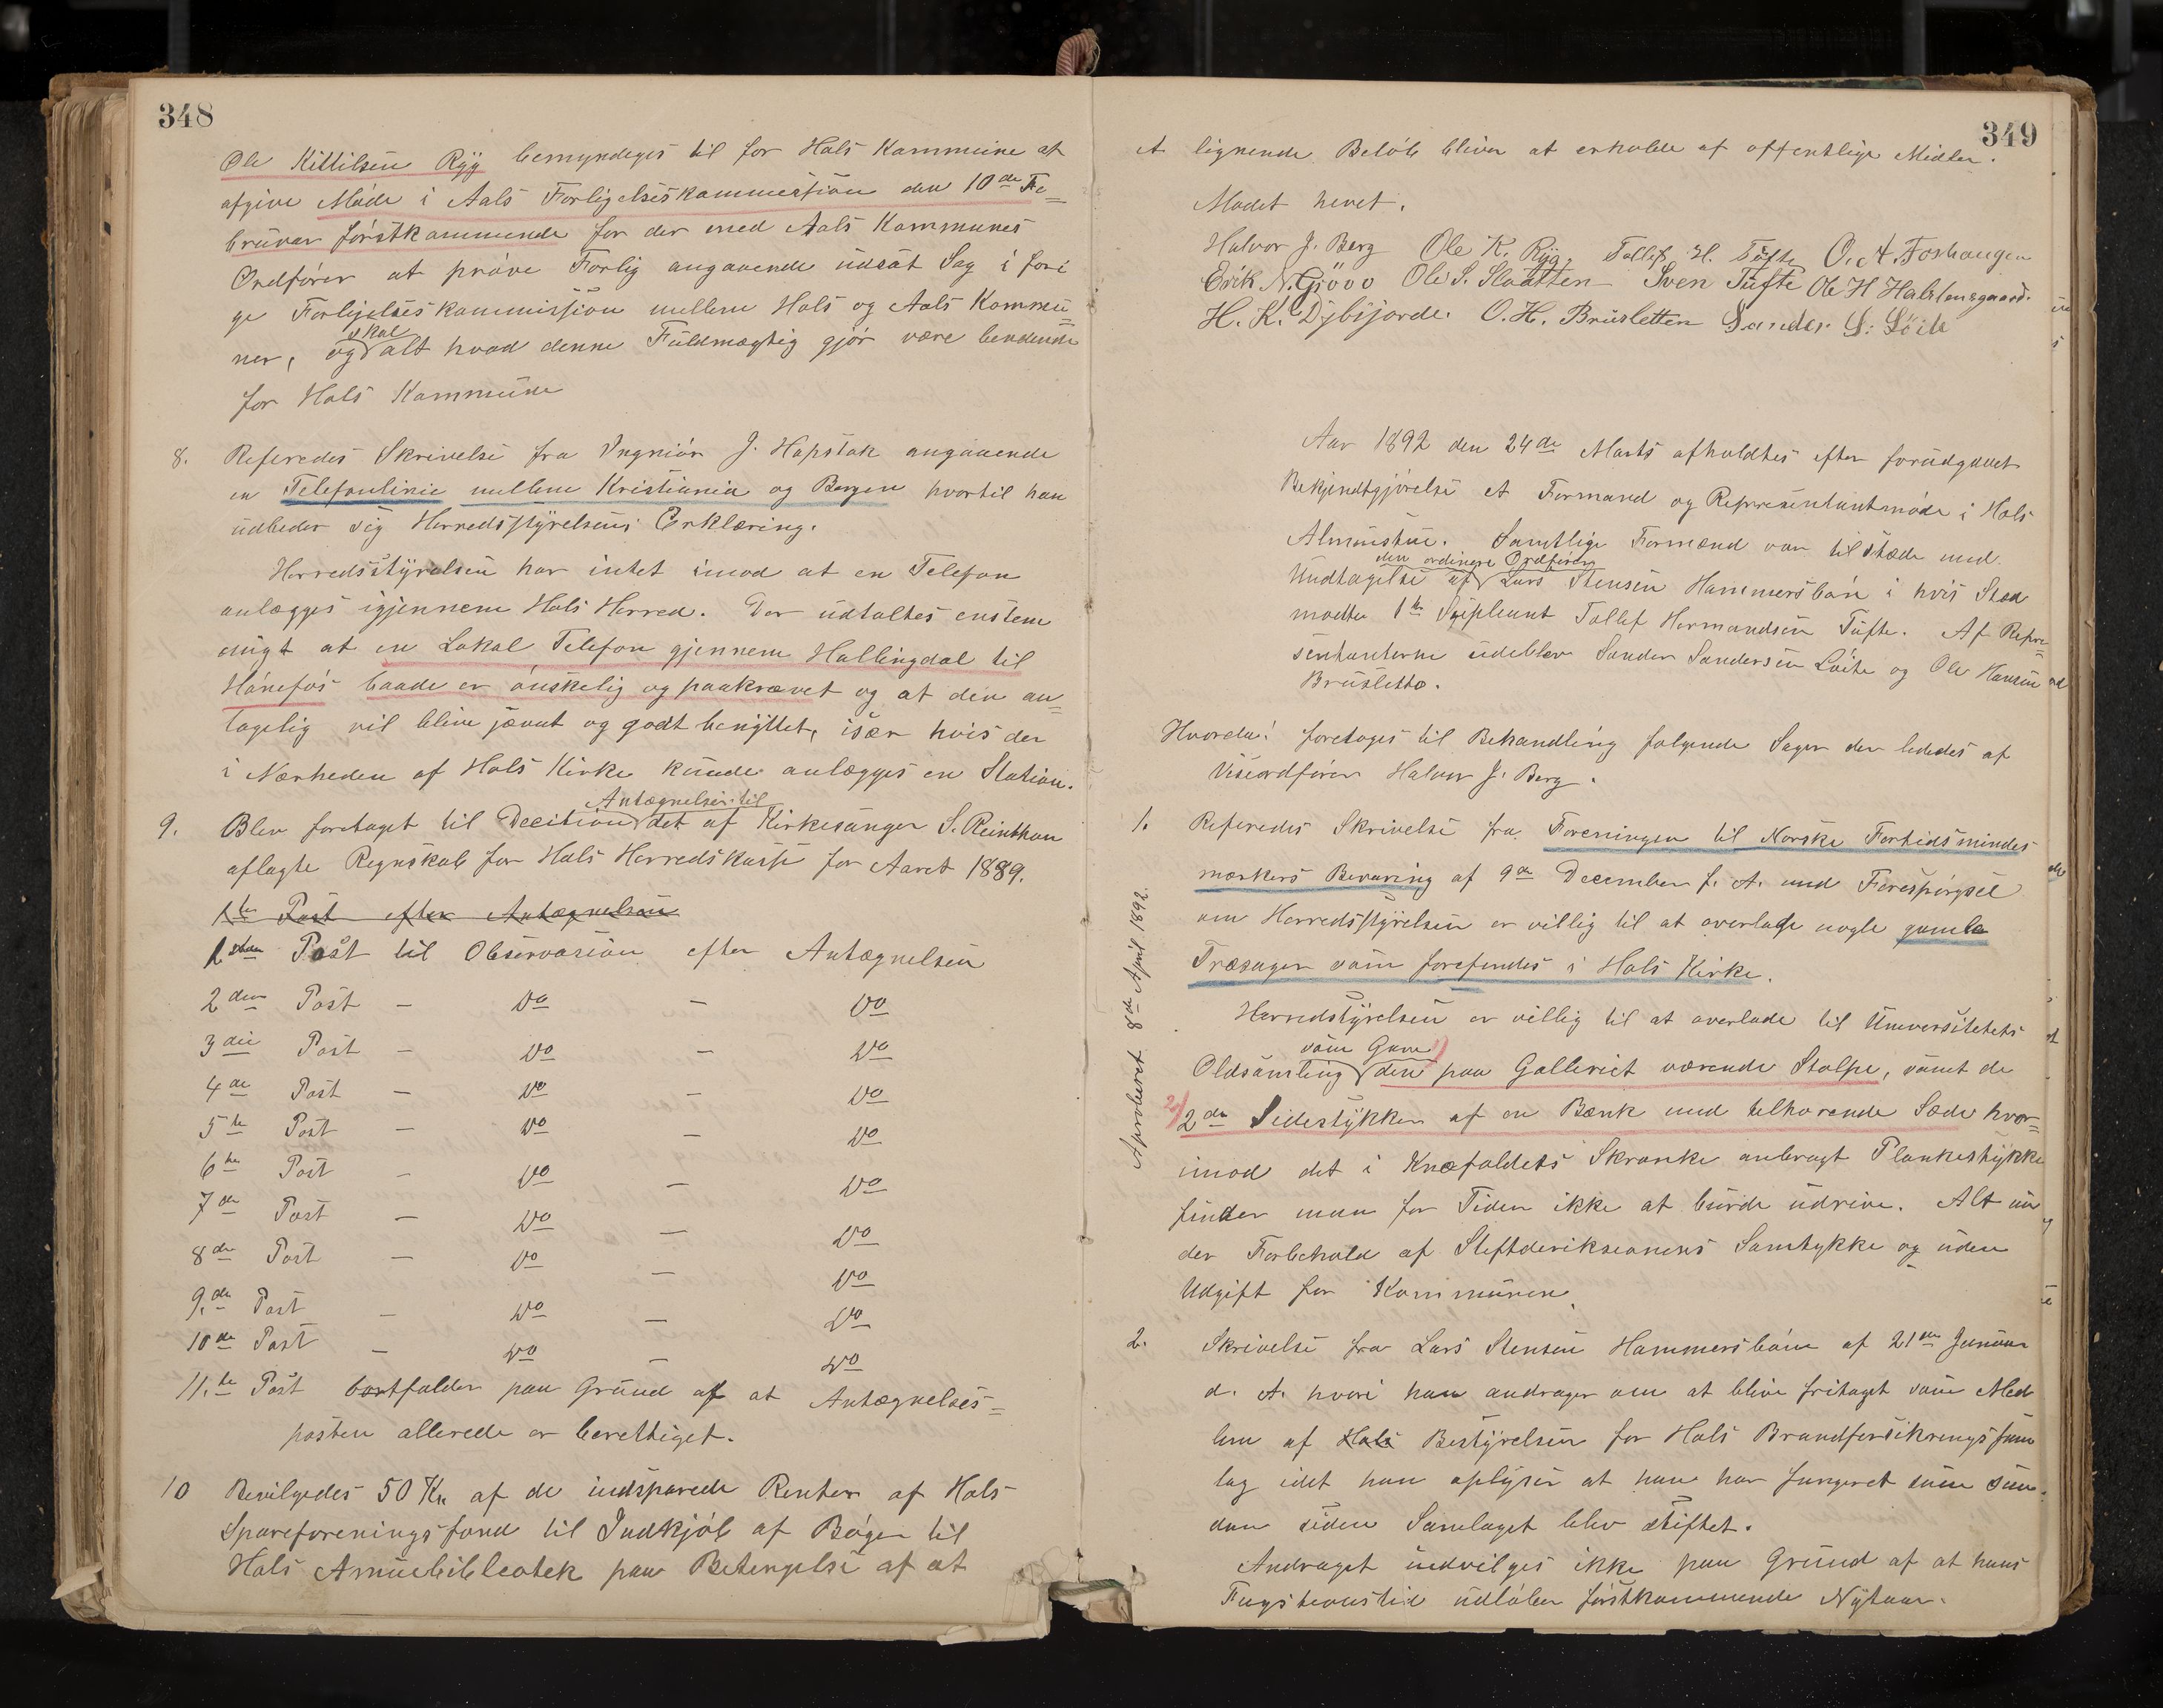 348
Ole Kittilsen Ryg bemyndeges til for Hols Kommune at
afgive Møde i Aals Forligelseskommission den 10de Fe=
bruar førstkommende for der med Aals Kommunes
Ordfører at prøve Forlig angaaende udsat Sag i fori
ge Forligelseskommission mellem Hols og Aals Kommu=
ner, og skal alt hvad denne Fuldmægtig gjør være bendende
for Hols Kommune
8. Referedes Skrivelse fra Ingniør J. Hapstok angaaende
en Telefonlinie mellem Kristiania og Bergen hvortil han
udbeder sig Herredsstyrelsens Erklæring.
Herredsstyrelsen har intet imod at en Telefon
anlægges igjennem Hols Herred. Der udtaltes enstem
migt at en Lokal Telefon gjennem Hallingdal til
Hønefos baade er ønskelig og paakrævet og at den an=
tagelig vil blive jævnt og godt benyttet, især hvis der
i Nærheden af Hols Kirke kunde anlægges en Station.
9. Blev foretaget til Decition Antægnelser til det af Kirkesanger S. Reinthon
aflagte Regnskab for Hols Herredskasse for Aaret 1889.
1te Post efter Antægnelsen
1ste Post til Observasion efter Antægnelsen
2den Post — Do — Do
3die Post — Do — Do
4de Post — Do — Do
5te Post — Do — Do
6te Post — Do — Do
7de Post — Do — Do
8de Post — Do — Do
9.de Post — Do — Do
10de Post — Do — Do
11.te Post bortfalder paa Grund af at Antægnelses=
posten allerede er berettiget.
10 Bevilgedes 50 Kr af de indsparede Renter af Hols
Spareforeningsfond til Indkjøb af Bøger til
Hols Amuebibleotek paa Betengelse af at
349
et lignende Beløb bliver at erholde af offentlige Midler.
Mødet hevet.
Halvor J. Berg Ole K. Ryg. Tollef H. Tufte O. A. Foshaugen
Erik N. Gjøvo Ole S. Slaatten Sven Tufte Ole H Halstensgaard.
H. K. Dybsjorde. O. H. Brusletten Sander S. Löite
Aar 1892 den 24de Marts afholdtes efter forudgaaet
Bekjendtgjørelse et Formand og Representantmøde i Hols
Almuestue. Samtlige Formænd var tilstæde med
Undtagelse af den ordinere Ordfører Lars Stensen Hammersbøn i hvis Sted
mødte 1te Supleant Tollef Hermandsen Tufte. Af Repre=
sentanterne udeblev Sander Sandersen Löite og Ole Hansen
Brusletto.
Hvorda! foretages til Behandling følgende Sager der lededes af
Viseordfører Halvor J. Berg.
1. Referedes Skrivelse fra Foreningen til Norske Fortidsmindes
mærkers Bevaring af 9de December f. A. med Forespørgsel
om Herredsstyrelsen er villig til at overlade nogle gamle
Træsager som forefindes i Hols Kirke.
Herredstyrelsen er villig til at overlade til Universitetets
Oldsamling som Gave 1) den paa Galleriet værende Stolpe, samt de
2) 2de Sidestykker af en Bænk med tilhørende Sæde hvor=
imod det i Knæfaldets Skranke anbragt Plankestykke
finder man for Tiden ikke at burde udrive. Alt un
der Forbehold af Steftderiksionens Samtykke og uden
Udgift for Kommunen.
Aproberet 8de April 1892.
2. Skrivelse fra Lars Stensen Hammersbøn af 21de Januar
d. A. hvori han andrager om at blive fritaget som Med
lem af Hols Bestyrelsen for Hols Brandforsikringssam
lag idet han oplyser at han har fungeret som saa=
dan siden Samlaget blev stiftet.
Andraget indvilges ikke paa Grund af at hans
Fugstionstid udløber førstkommende Nytaar.